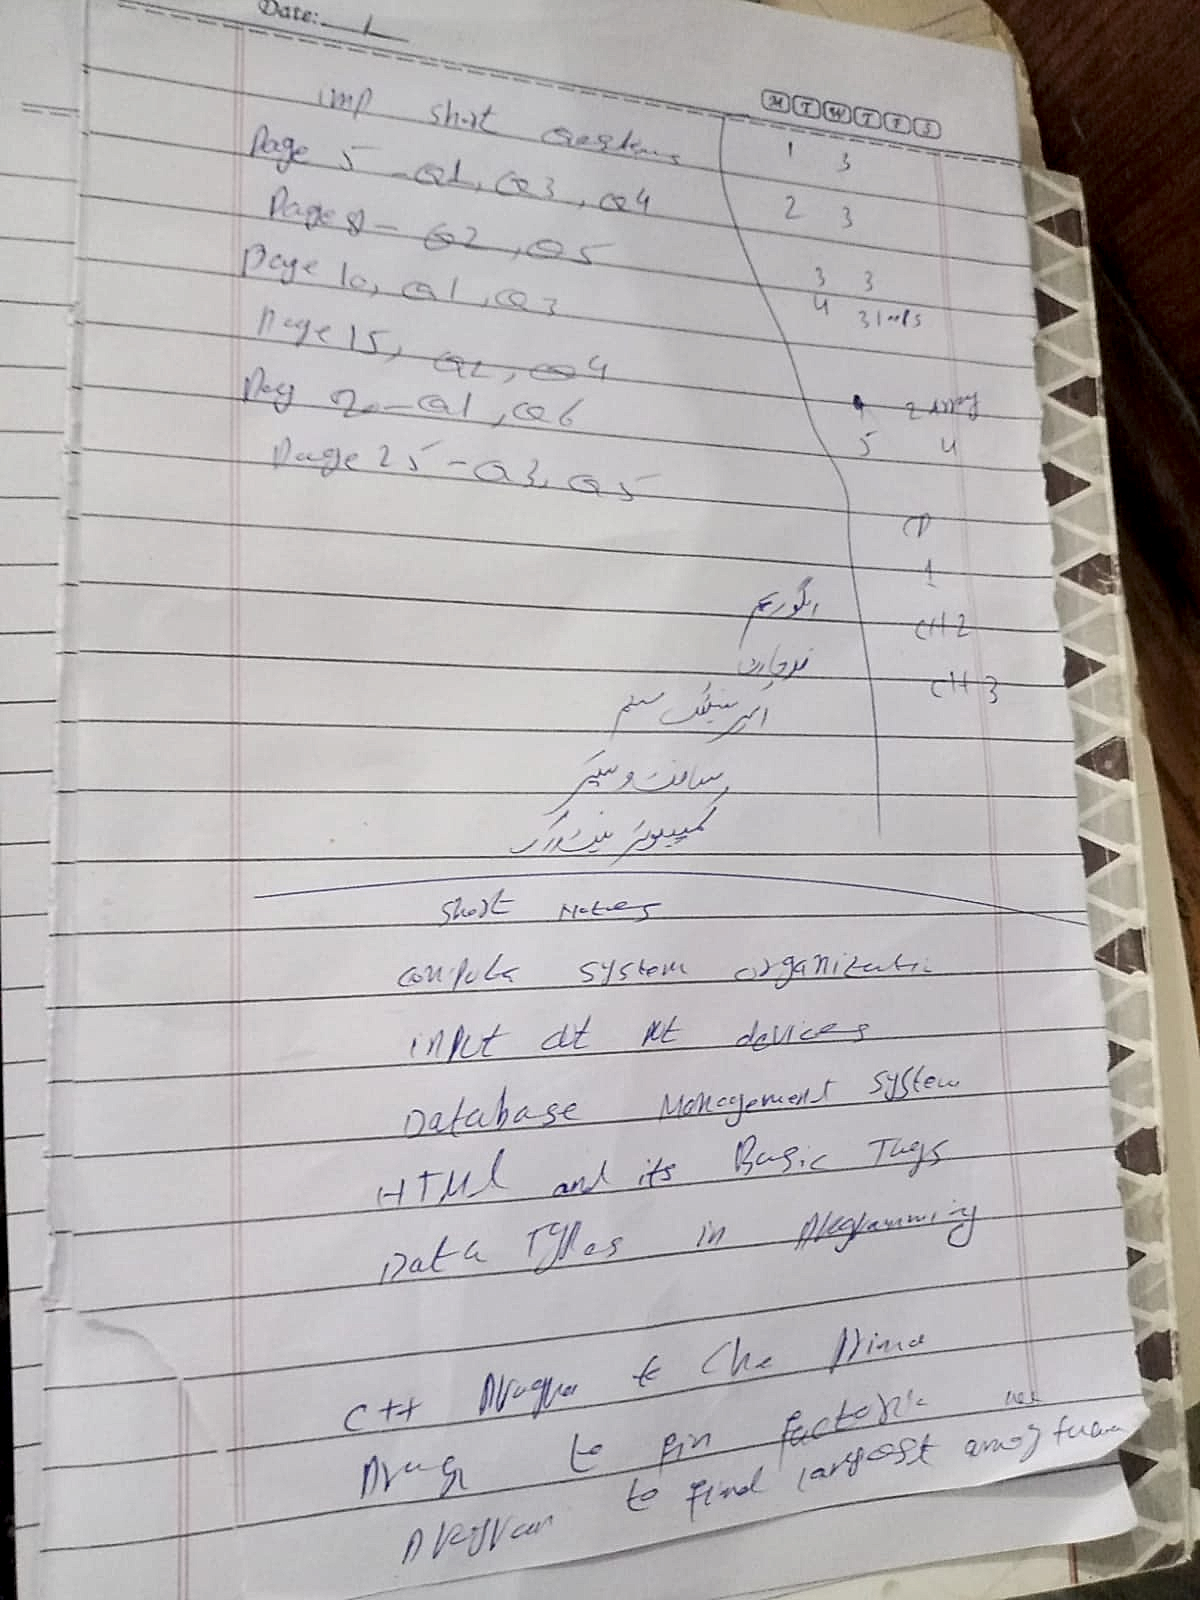 Date:
M T W T F S
imp short Questions
Page 5 - Q1, Q3, Q4
Page 8 - Q2, Q5
Page 10, Q1, Q3
Page 15, Q2, Q4
Q1, Q6
Page 25 - Q3, Q5
1 3
2 3
3 3
4 3
2 Array
5 4
1
CH 2
CH 3
الگوریتھم
فلوچارٹ
آپریٹنگ سسٹم
سافٹ ویئر
کمپیوٹر نیٹ ورک
Short Notes
computer system organization
input devices
Database Management System
HTML and its Basic Tags
Data Types in Programming
C++ Program to Prime
to factorial
Program to find largest among